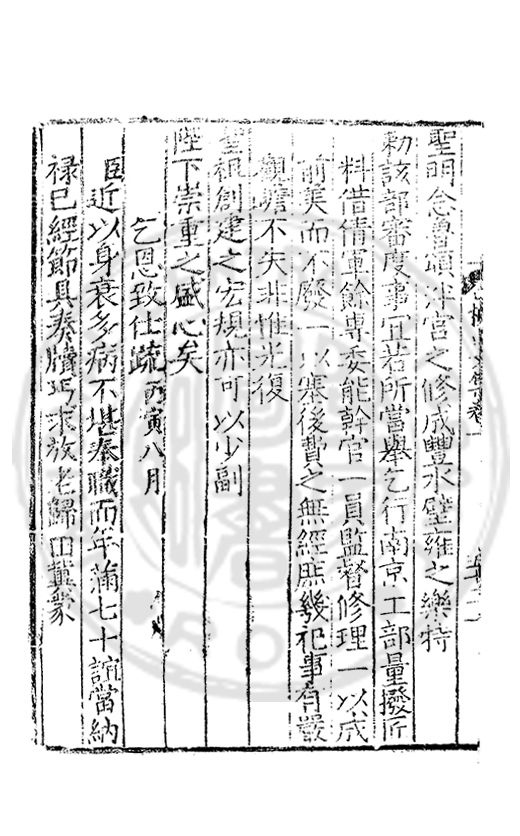 聖明念魯頌泮宮之修成豐水璧雍之樂特
勑該部審度事宜若所當舉乞行南京工部量撥匠
料借倩軍餘專委能幹官一員監督修理一以成
前美而不廢一以塞後費之無經庶幾祀事有嚴
觀瞻不失非惟光復
聖祖創建之宏規亦可以少副
陛下崇重之盛心矣
乞恩致仕疏丙寅八月
臣近以身衰多病不堪奉職而年蒲七十誼當納
禄已經節具奏牘丐求放老歸田冀蒙